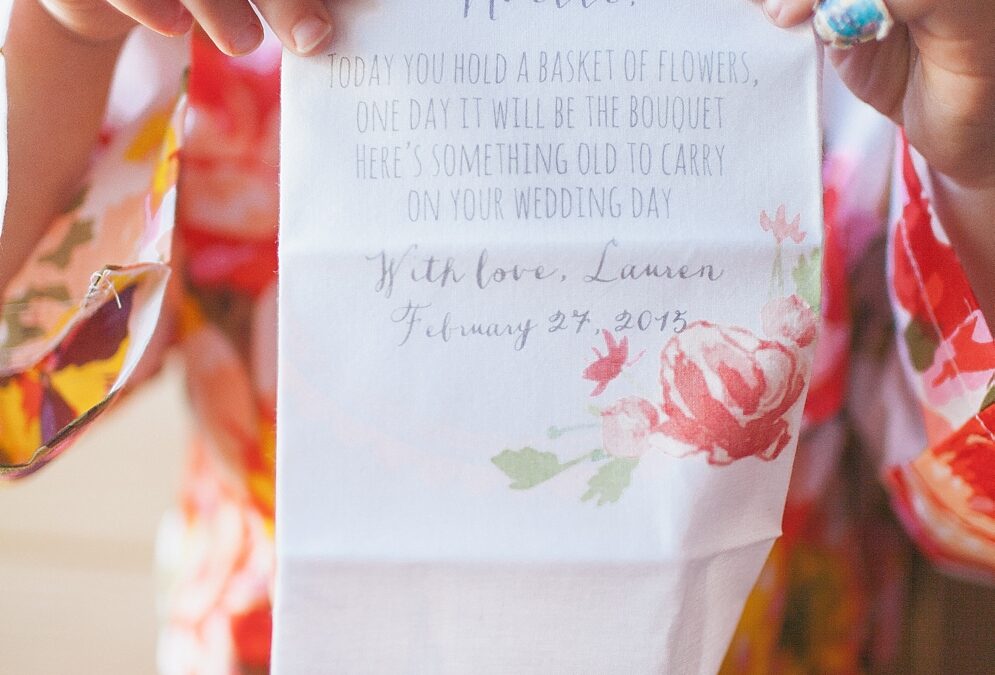 TODAY YOU HOLD A BASKET OF FLOWERS,
ONE DAY IT WILL BE THE BOUQUET
HERE'S SOMETHING OLD TO CARRY
ON YOUR WEDDING DAY
With love, Lauren
February 27, 2015